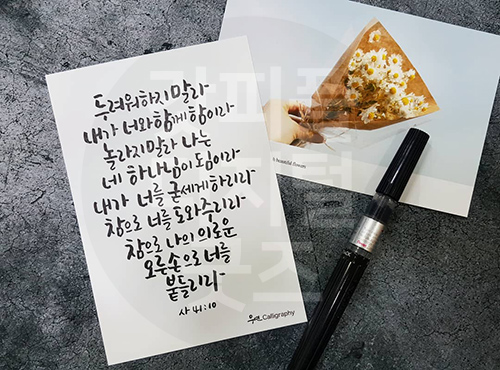 두려워하지 말라
내가 너와 함께 함이라
놀라지 말라 나는
네 하나님이 됨이라
내가 너를 굳세게 하리라
참으로 너를 도와주리라
참으로 나의 의로운
오른손으로 너를
붙들리라
사 41:10
Calligraphy
beautiful flowers